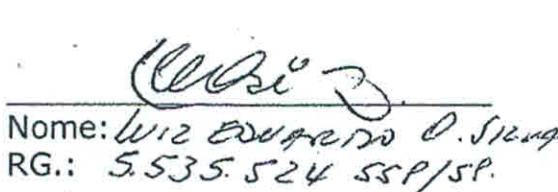 Nome: LUIZ EDUARDO O. SILVA
RG.: 5.535.524 SSP/SP.